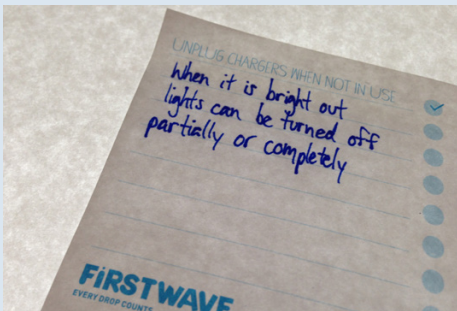 UNPLUG CHARGERS WHEN NOT IN USE
When it is bright out
lights can be turned off
partially or completely
FiRSTWAVE
EVERY DROP COUNTS